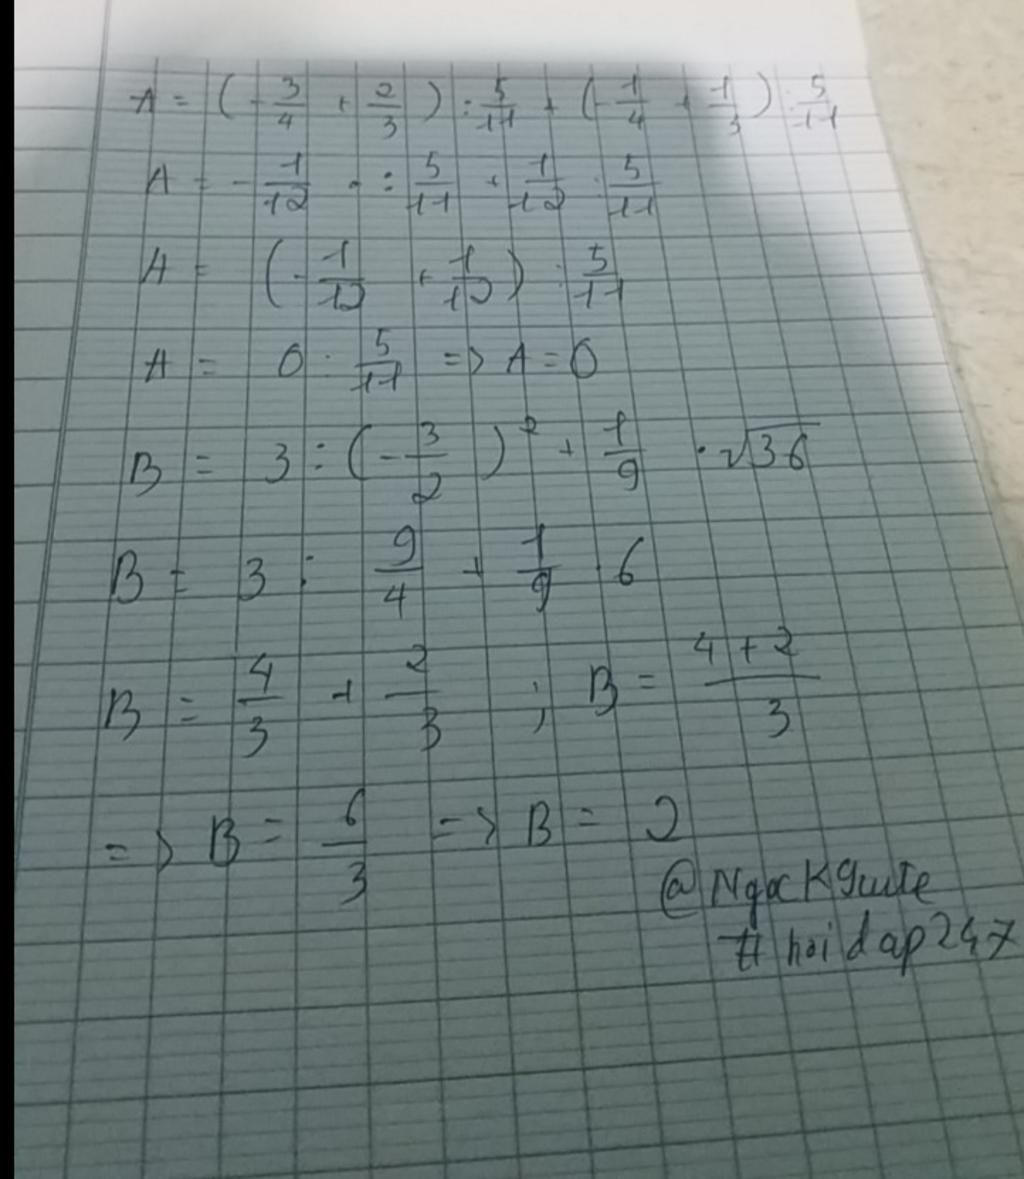 A = (-3/4 + 2/3) : 5/11 + (-1/4 + 1/3) : 5/11
A = -1/12 : 5/11 + 1/12 : 5/11
A = (-1/12 + 1/12) : 5/11
A = 0 : 5/11 => A = 0
B = 3 : (-3/2)² + 1/9 . √36
B = 3 : 9/4 + 1/9 . 6
B = 4/3 + 2/3 ; B = (4 + 2)/3
=> B = 6/3 => B = 2
@NgocK9cute
# hoidap247